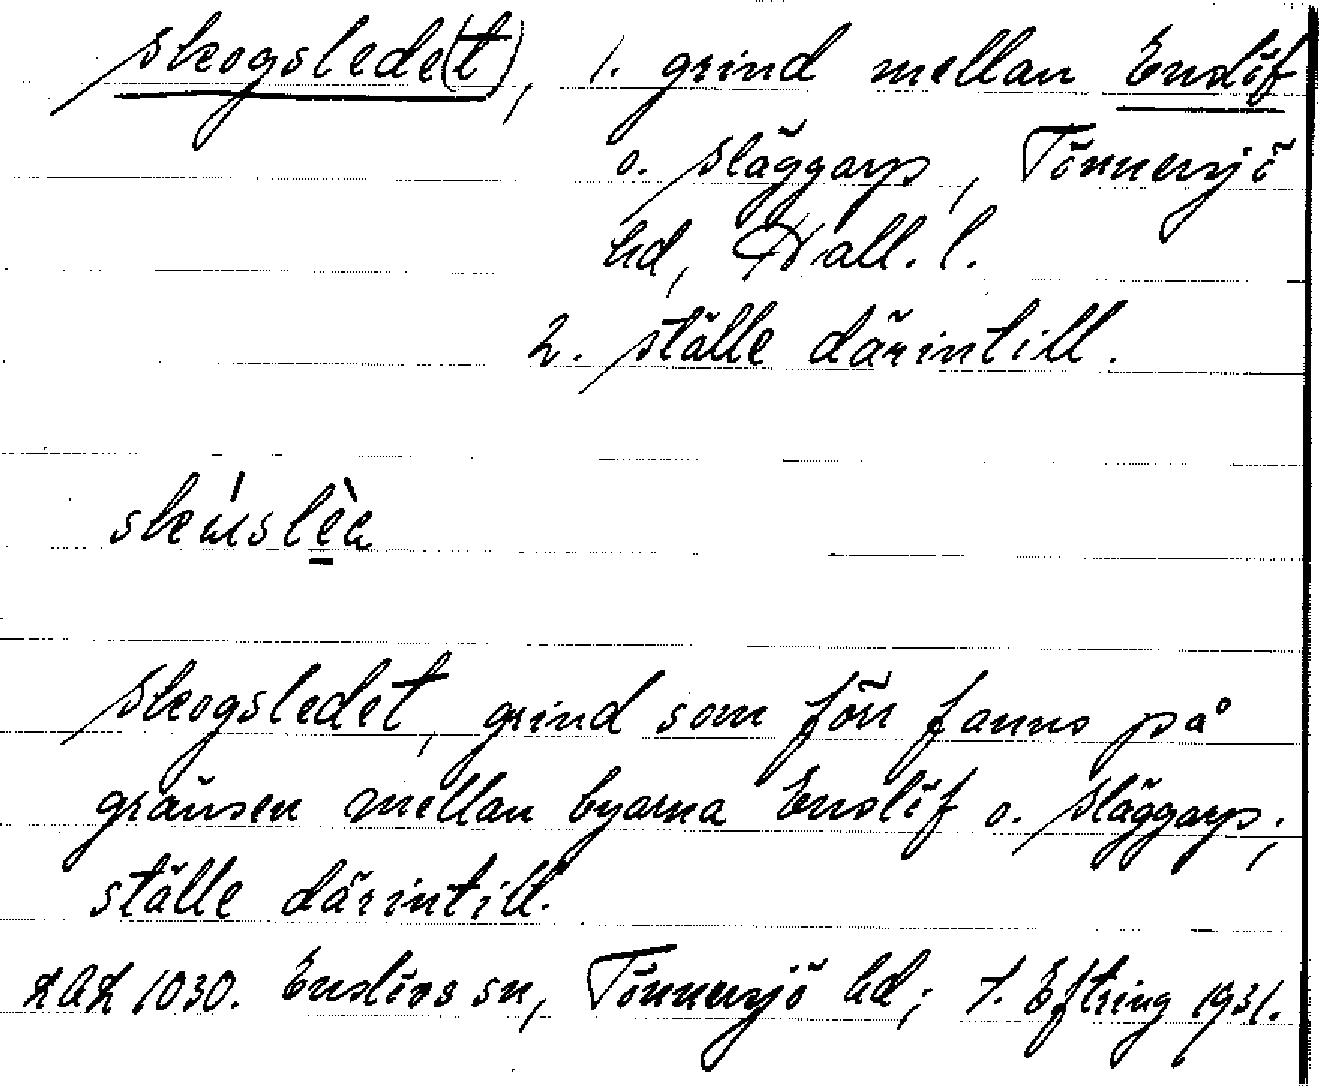 skogslede(t), 1. grind mellan Enslöf
o. Släggarp, Tönnersjö
hd, Hall. l.
2. ställe därintill.
Skogsledet, grind som förr fanns på
gränsen mellan byarna Enslöf o. Släggarp;
ställe därintill.
1030. Enslövs sn, Tönnersjö hd; Eftring 1931.